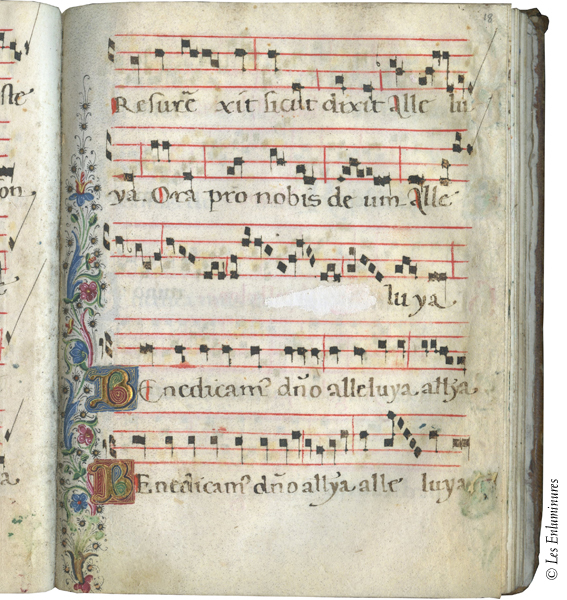 18
Resurē xit sicut dixit alle lu
ya. Ora pro nobis deum Alle
luya
Benedicam⁹ dn̄o alleluya allya
Benedicam⁹ dn̄o allya alle luya
© Les Enluminures